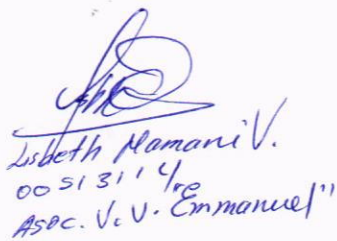 Lisbeth Mamani V.
00513114
Asoc. V.V. "Emmanuel"